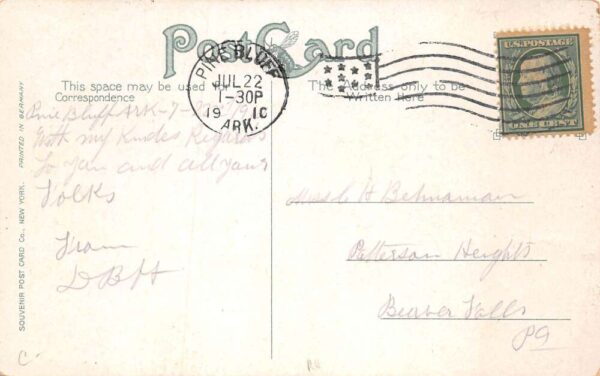 Post Card
This space may be used for
Correspondence
The Address only to be
Written Here
PINE BLUFF
JUL 22
1-30P
19 10
ARK.
U.S. POSTAGE
ONE CENT
Pine Bluff Ark-7-22-1910
With my Kindes Regards
to you and all your
Folks
From
DBH
H Behnaman
Patterson Heights
Beaver Falls
Pa
SOUVENIR POST CARD Co., NEW YORK.
PRINTED IN GERMANY
C